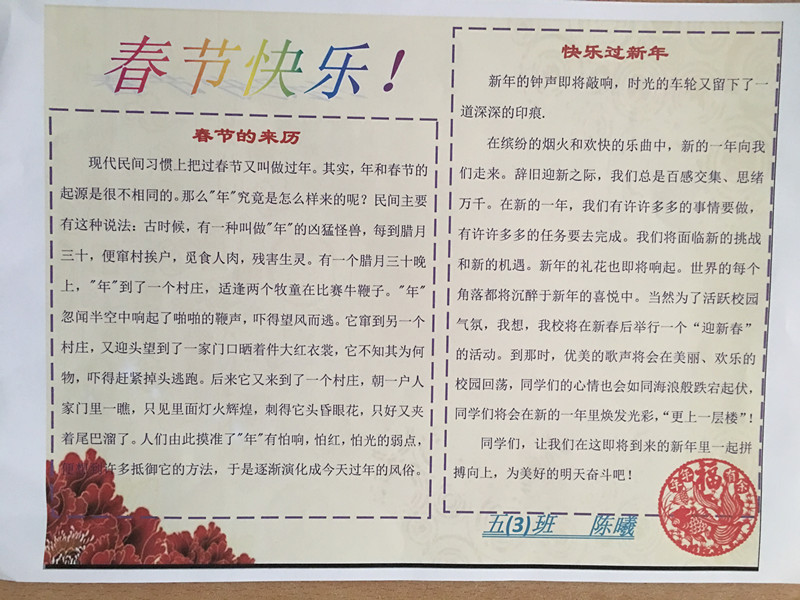 春节快乐！
春节的来历
现代民间习惯上把过春节又叫做过年。其实，年和春节的
起源是很不相同的。那么"年"究竟是怎么样来的呢？民间主要
有这种说法：古时候，有一种叫做"年"的凶猛怪兽，每到腊月
三十，便窜村挨户，觅食人肉，残害生灵。有一个腊月三十晚
上，"年"到了一个村庄，适逢两个牧童在比赛牛鞭子。"年"
忽闻半空中响起了啪啪的鞭声，吓得望风而逃。它窜到另一个
村庄，又迎头望到了一家门口晒着件大红衣裳，它不知其为何
物，吓得赶紧掉头逃跑。后来它又来到了一个村庄，朝一户人
家门里一瞧，只见里面灯火辉煌，刺得它头昏眼花，只好又夹
着尾巴溜了。人们由此摸准了"年"有怕响，怕红，怕光的弱点，
许多抵御它的方法，于是逐渐演化成今天过年的风俗。
快乐过新年
新年的钟声即将敲响，时光的车轮又留下了一
道深深的印痕.
在缤纷的烟火和欢快的乐曲中，新的一年向我
们走来。辞旧迎新之际，我们总是百感交集、思绪
万千。在新的一年，我们有许许多多的事情要做，
有许许多多的任务要去完成。我们将面临新的挑战
和新的机遇。新年的礼花也即将响起。世界的每个
角落都将沉醉于新年的喜悦中。当然为了活跃校园
气氛，我想，我校将在新春后举行一个“迎新春”
的活动。到那时，优美的歌声将会在美丽、欢乐的
校园回荡，同学们的心情也会如同海浪般跌宕起伏，
同学们将会在新的一年里焕发光彩，“更上一层楼”！
同学们，让我们在这即将到来的新年里一起拼
搏向上，为美好的明天奋斗吧！
福
五(3)班 陈曦